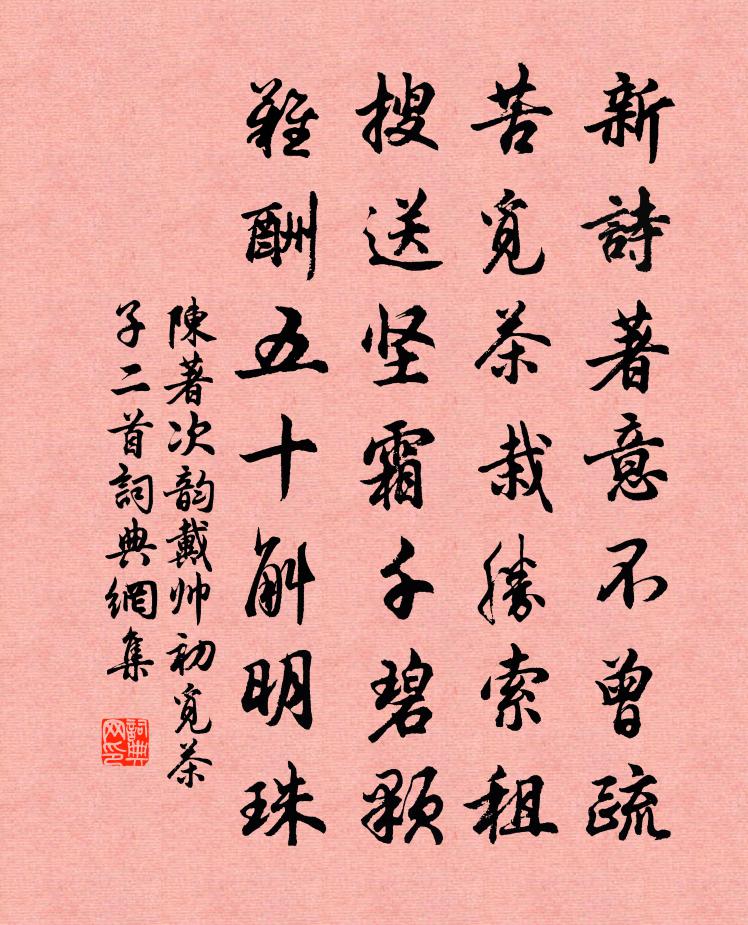 新詩著意不曾疏
苦覓茶栽勝索租
搜送坚霜千碧顆
難酬五十斛明珠
陳著次韵戴帅初覓茶
子二首詞典網集
詞典网印